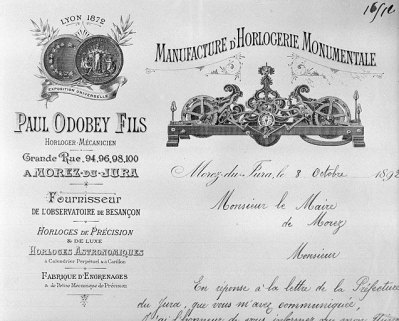 16/12
LYON 1872
EXPOSITION UNIVERSELLE
MANUFACTURE D'HORLOGERIE MONUMENTALE
PAUL ODOBEY FILS
HORLOGER-MÉCANICIEN
Grande Rue, 94, 96, 98, 100
A MOREZ-DU-JURA
Fournisseur
DE L'OBSERVATOIRE DE BESANÇON
HORLOGES DE PRÉCISION
& DE LUXE
HORLOGES ASTRONOMIQUES
à Calendrier Perpétuel & à Carillon
FABRIQUE D'ENGRENAGES
& de Petite Mécanique de Précision
Morez-du-Jura, le 8 Octobre 1892
Monsieur le Maire
de Morez
Monsieur
En réponse à la lettre de la Préfecture
du Jura, que vous m'avez communiquée,
J'ai l'honneur de vous informer